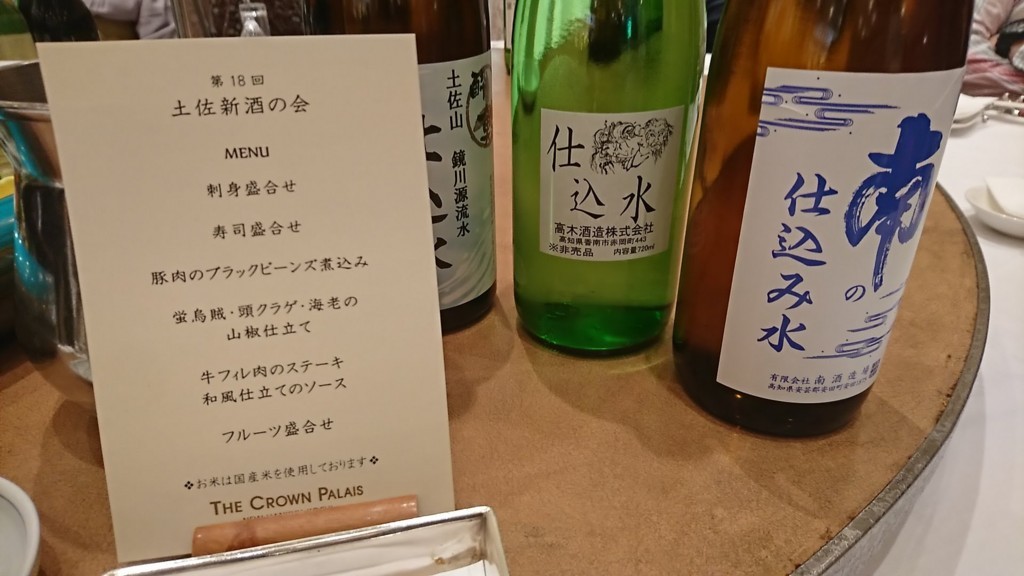 第18回
土佐新酒の会
MENU
刺身盛合せ
寿司盛合せ
豚肉のブラックビーンズ煮込み
蛍烏賊・頭クラゲ・海老の
山椒仕立て
牛フィレ肉のステーキ
和風仕立てのソース
フルーツ盛合せ
❖お米は国産米を使用しております❖
THE CROWN PALAIS
土佐山 鏡川源流水
仕込水
仕込水
高木酒造株式会社
高知県香南市赤岡町443
※非売品 内容量720ml
南の
仕込み水
有限会社南酒造場
高知県安芸郡安田町安田